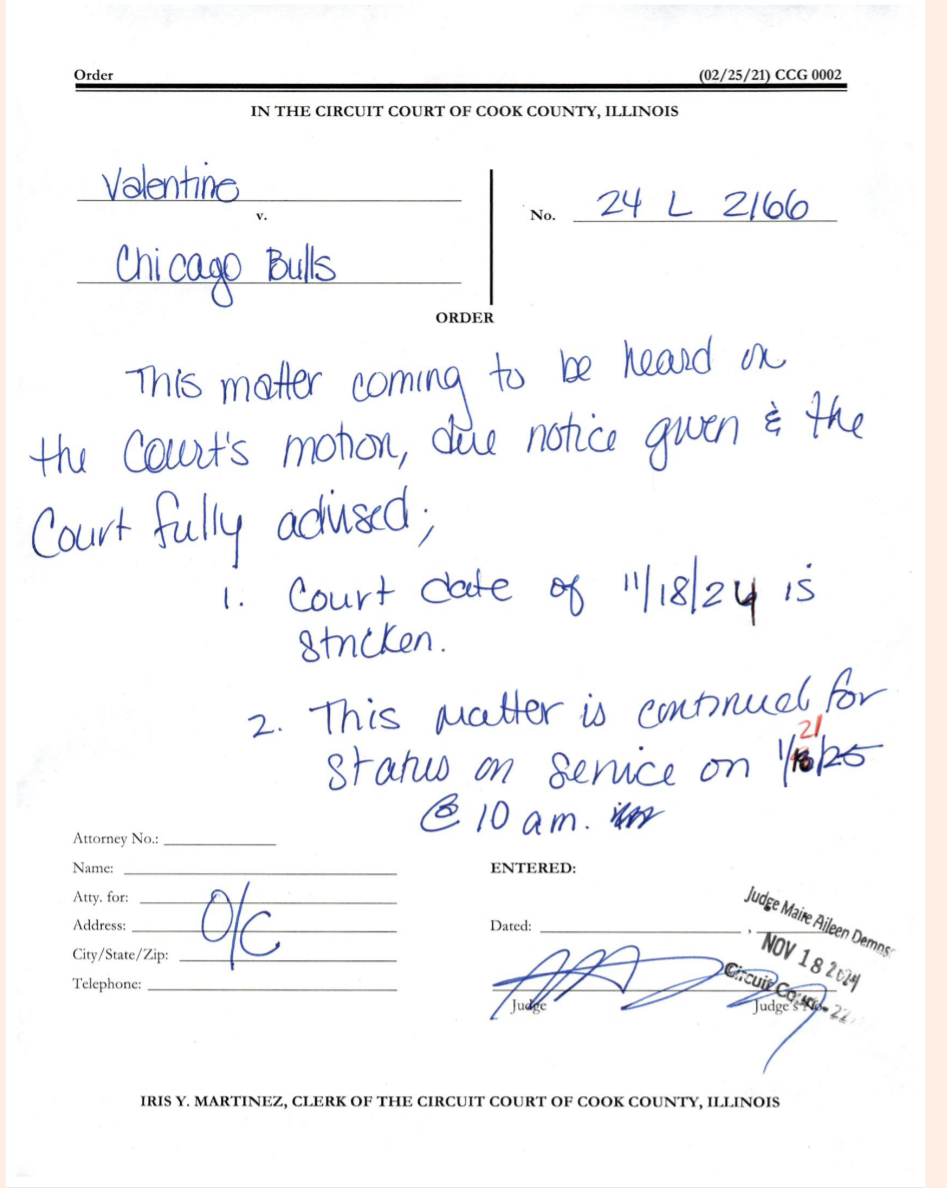 Order (02/25/21) CCG 0002
IN THE CIRCUIT COURT OF COOK COUNTY, ILLINOIS
Valentine
v.
Chicago Bulls
No. 24 L 2166
ORDER
This matter coming to be heard on
the Court's motion, due notice given & the
Court fully advised;
1. Court date of 11/18/24 is
stricken.
2. This matter is continued for
status on service on 1/21/25
@ 10 am.
Attorney No.:
Name:
Atty. for:
Address:
City/State/Zip:
Telephone:
O/C
ENTERED:
Dated: ,
Judge Maire Aileen Demps
NOV 18 2024
Circuit Court - 22
Judge Judge's No.
IRIS Y. MARTINEZ, CLERK OF THE CIRCUIT COURT OF COOK COUNTY, ILLINOIS